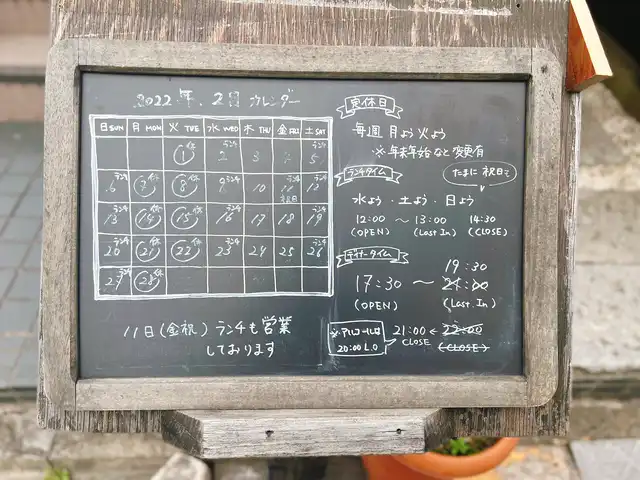 2022年.2月 カレンダー
日SUN 月MON 火TUE 水WED 木THU 金FRI 土SAT
1休 2ランチ 3 4 5ランチ
6ランチ 7休 8休 9ランチ 10 11ランチ祝日 12ランチ
13ランチ 14休 15休 16ランチ 17 18 19ランチ
20ランチ 21休 22休 23ランチ 24 25 26ランチ
27ランチ 28休
11日(金祝)ランチも営業
しております
定休日
毎週 月よう火よう
※年末年始など変更有
ランチタイム
たまに祝日も
水よう・土よう・日よう
12:00 〜 13:00 14:30
(OPEN) (Last In) (CLOSE)
ディナータイム
19:30
17:30 〜 21:00
(OPEN) (Last.In)
※アルコールは
20:00 L.O
21:00 ← 22:00
CLOSE (CLOSE)